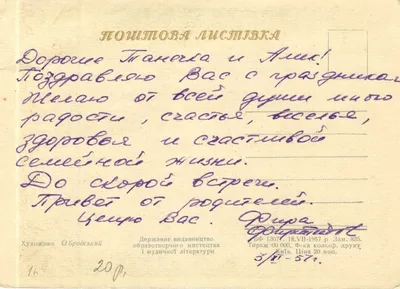 ПОШТОВА ЛИСТІВКА
Дорогие Таночка и Алик!
Поздравляю Вас с праздником
Желаю от всей души много
радости, счастья, веселья,
здоровья и счастливой
семейной жизни.
До скорой встречи.
Привет от родителей.
Целую Вас. Фира
Художник О. Бродський
Державне видавництво
образотворчого мистецтва
і музичної літератури
18.VII-1957 р.
Київ. Ціна 20 коп.
20 р.